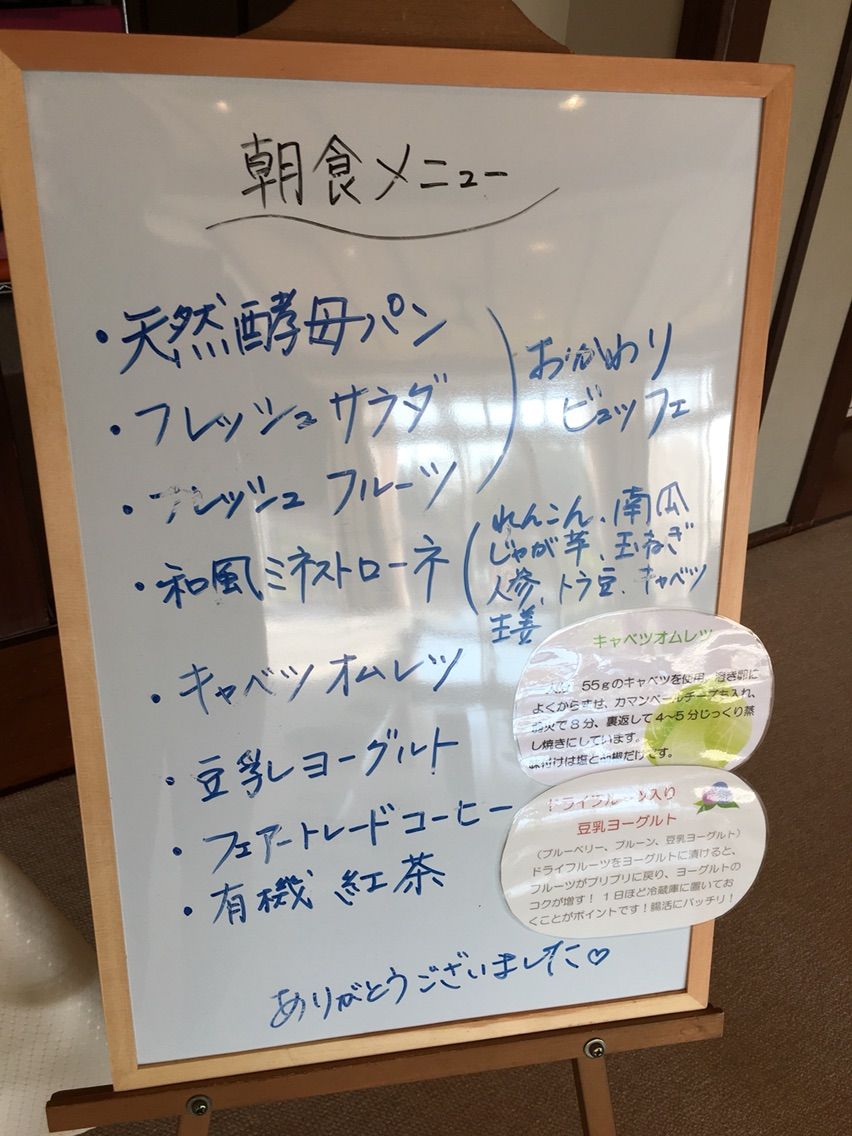 朝食メニュー
・天然酵母パン
・フレッシュサラダ
・フレッシュ フルーツ
おかわり
ビュッフェ
・和風ミネストローネ
れんこん、南瓜
じゃが芋、玉ねぎ
人参、トラ豆、キャベツ
生姜
・キャベツ オムレツ
・豆乳ヨーグルト
・フェアートレードコーヒー
・有機 紅茶
ありがとうございました♡
キャベツオムレツ
55gのキャベツを使用。溶き卵に
よくからませ、カマンベールチーズも入れ、
弱火で8分、裏返して4～5分じっくり蒸
し焼きにしています。
味付けは塩と胡椒だけです。
ドライフルーツ入り
豆乳ヨーグルト
（ブルーベリー、プルーン、豆乳ヨーグルト）
ドライフルーツをヨーグルトに漬けると、
フルーツがプリプリに戻り、ヨーグルトの
コクが増す！ 1日ほど冷蔵庫に置いてお
くことがポイントです！腸活にバッチリ！